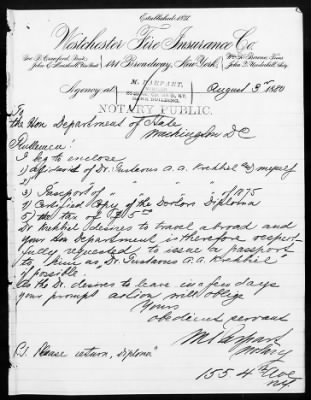 Established 1837.
Westchester Fire Insurance Co.
Geo. R. Crawford, Prest. Wm. H. Bowne, Treas.
141 Broadway, New York, John Q. Underhill, Secy.
Agency at M. PARPART, August 3rd 1880
NOTARY PUBLIC.
To
the Hon Department of State
Washington D.C
Gentlemen!
I beg to enclose
1) affidavit of Dr. Gustavus A. A. Krehbiel & myself
2)
3) Passport of " " of 1875
4) Certified Copy of the Doctors Diploma
5) the tax of $5.00
Dr Krehbiel desires to travel abroad and
your Hon Department is therefore respect-
fully requested to issue a passport
to him as "Dr. Gustavus A. A. Krehbiel
if possible.
As the Dr. desires to leave in a few days
your prompt action will oblige
Yours
obedient servant
M Parpart
Notary
155 4th Ave
NY
P.S. Please return "Diploma"